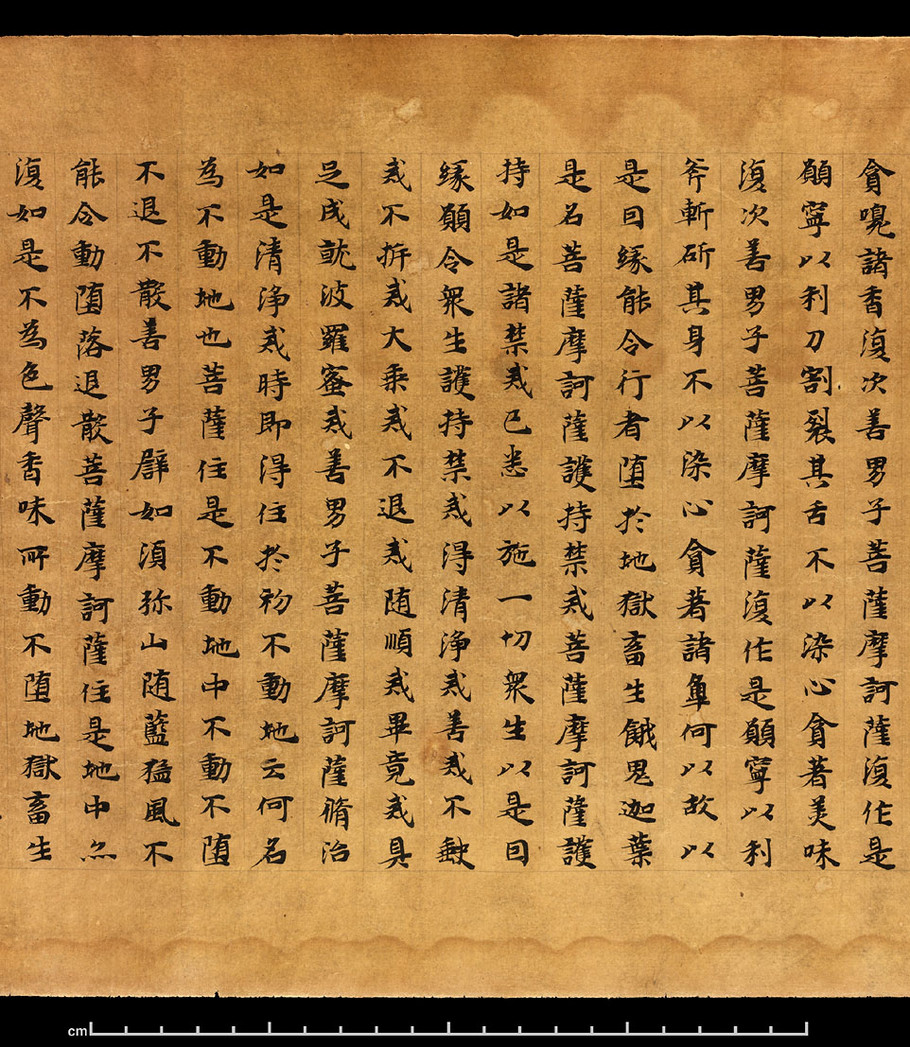 貪嗅諸香復次善男子菩薩摩訶薩復作是
願寧以利刀割裂其舌不以染心貪著美味
復次善男子菩薩摩訶薩復作是願寧以利
斧斬斫其身不以染心貪著諸觸何以故以
是因緣能令行者墮於地獄畜生餓鬼迦葉
是名菩薩摩訶薩護持禁戒菩薩摩訶薩護
持如是諸禁戒已悉以施一切眾生以是因
緣願令眾生護持禁戒得清淨戒善戒不缺
戒不㭊戒大乘戒不退戒隨順戒畢竟戒具
足成就波羅蜜戒善男子菩薩摩訶薩脩治
如是清淨戒時即得住於初不動地云何名
為不動地也菩薩住是不動地中不動不墮
不退不散善男子辟如須弥山随藍猛風不
能令動墮落退散菩薩摩訶薩住是地中亦
復如是不為色聲香味所動不墮地獄畜生